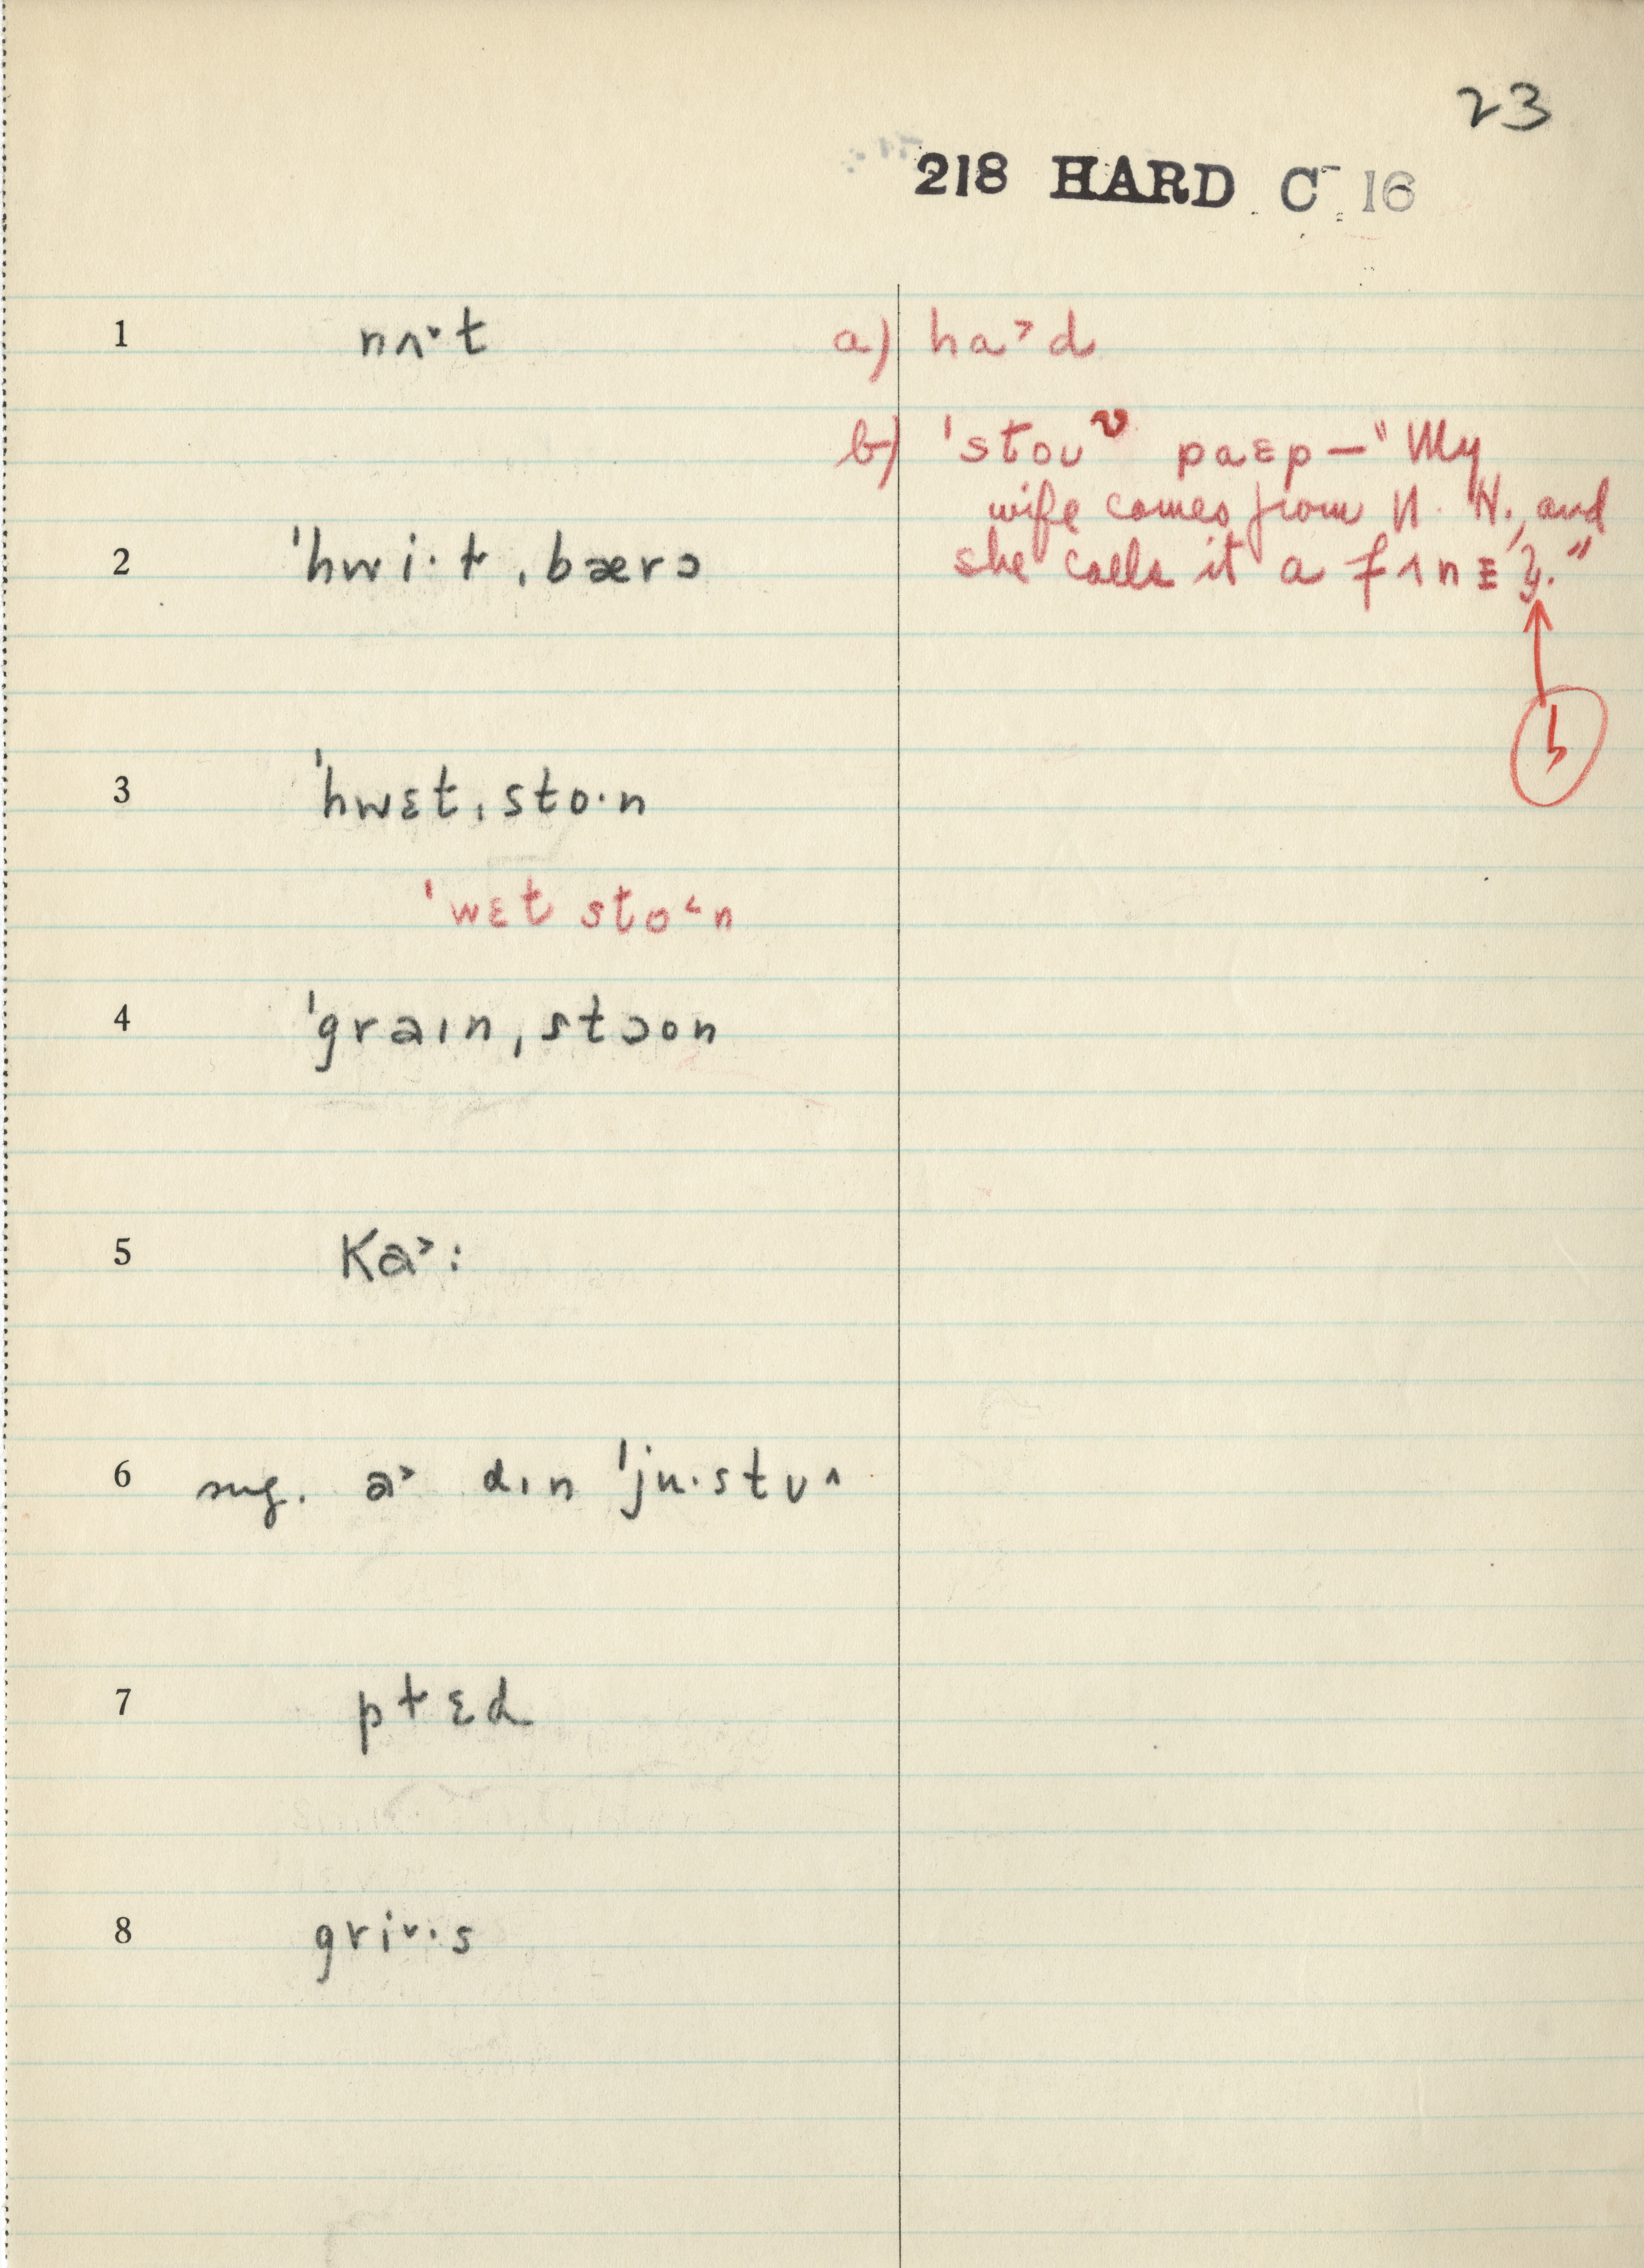 23
218 HARD C 16
1 nʌ˅t
a) ha˃d
b) 'stoʊ^v paɛp — "My
wife comes from N. H., and
she calls it a fʌnɛɫ."
2 'hwi·ɫ ˌbærə
3 'hwɛtˌsto·n
'wɛt sto˂n
4 'graɪnˌstɔon
5 Ka˃:
6 sug. a˃ dɪn 'ju·stʊ˄
7 pɫɛd
8 gri˅·s